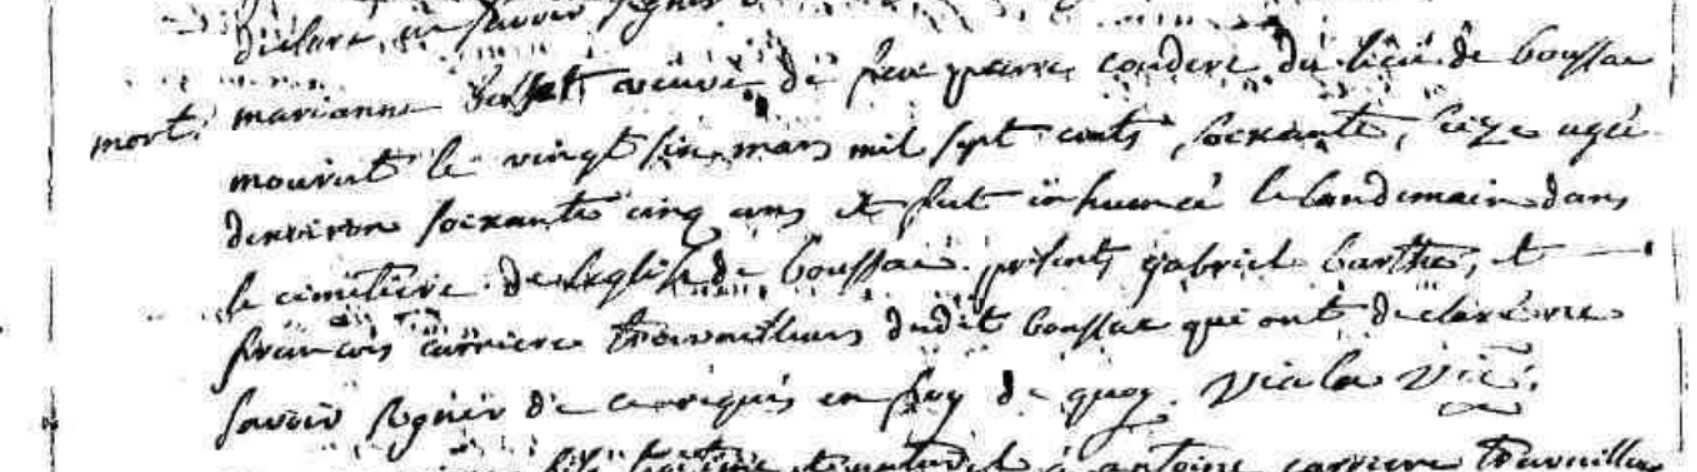 declaré ne savoir signer
mort.
marianne veuve de feu pierre couderc du lieu de boussac
mourut le vingt six mars mil sept cents soixante, seize agée
denviron soixante cinq ans et fut inhumée le landemain dans
le cimetiere de leglise de boussac. présents gabriel barthe, et
francois carriere travailleurs dudit boussac qui ont declaré ne
savoir signer de ce requis en foy de quoy. Viala vic.
antoine carriere travailleur